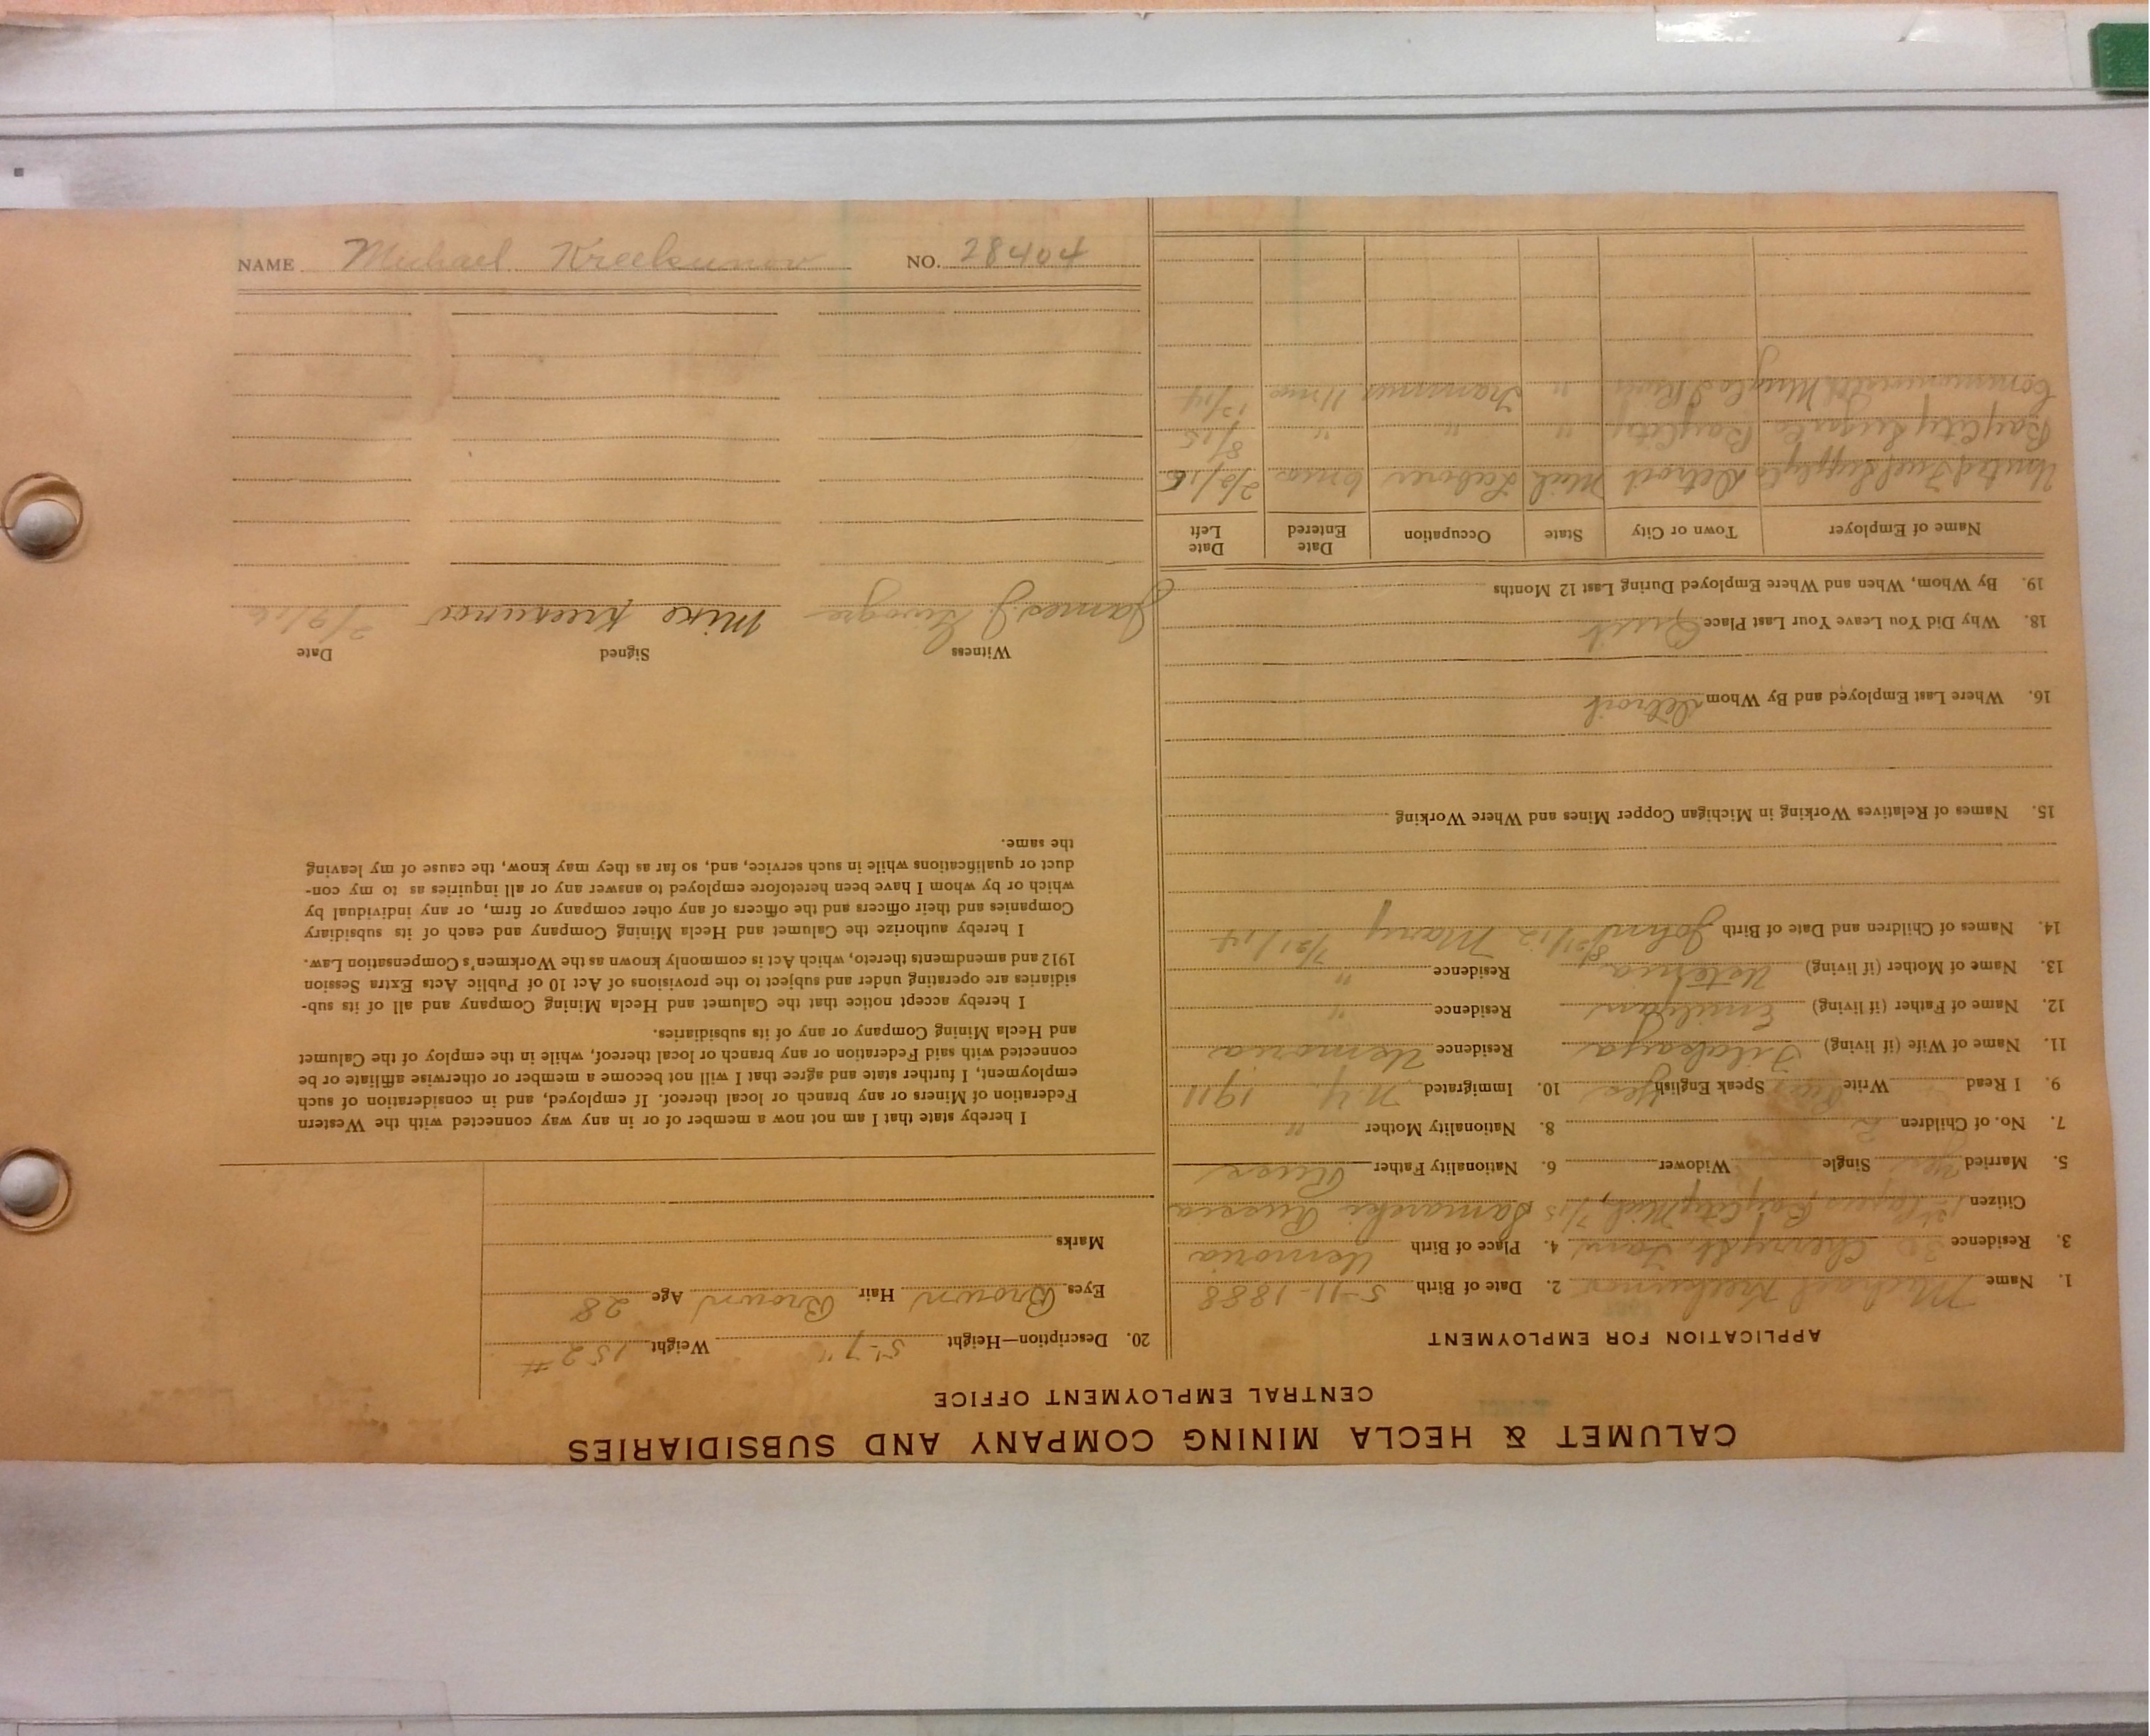 CALUMET & HECLA MINING COMPANY AND SUBSIDIARIES
CENTRAL EMPLOYMENT OFFICE
APPLICATION FOR EMPLOYMENT
1. Name Michael 2. Date of Birth 5-11-1888
3. Residence Cherry St. 4. Place of Birth
Citizen 1st Papers Bay City Mich, 7/15 Samarski Russia
5. Married Yes Single Widower 6. Nationality Father Russ
7. No. of Children 2 8. Nationality Mother "
9. I Read Write Speak English Yes 10. Immigrated N.Y. 1911
11. Name of Wife (if living) Residence
12. Name of Father (if living) Residence "
13. Name of Mother (if living) Residence "
14. Names of Children and Date of Birth John 8/21/12 Mary 7/21/14
15. Names of Relatives Working in Michigan Copper Mines and Where Working
16. Where Last Employed and By Whom Detroit
18. Why Did You Leave Your Last Place Quit
19. By Whom, When and Where Employed During Last 12 Months
Name of Employer Town or City State Occupation Date Entered Date Left
United Fuel Supply Co Detroit Mich Laborer 6 mos
Bay City Sugar Co Bay City " " " 8/15
River " Trammer 11 mos 12/14
20. Description—Height 5'-7" Weight 152#
Eyes Brown Hair Brown Age 28
Marks
I hereby state that I am not now a member of or in any way connected with the Western
Federation of Miners or any branch or local thereof. If employed, and in consideration of such
employment, I further state and agree that I will not become a member or otherwise affiliate or be
connected with said Federation or any branch or local thereof, while in the employ of the Calumet
and Hecla Mining Company or any of its subsidiaries.
I hereby accept notice that the Calumet and Hecla Mining Company and all of its sub-
sidiaries are operating under and subject to the provisions of Act 10 of Public Acts Extra Session
1912 and amendments thereto, which Act is commonly known as the Workmen's Compensation Law.
I hereby authorize the Calumet and Hecla Mining Company and each of its subsidiary
Companies and their officers and the officers of any other company or firm, or any individual by
which or by whom I have been heretofore employed to answer any or all inquiries as to my con-
duct or qualifications while in such service, and, so far as they may know, the cause of my leaving
the same.
Witness Signed Date
James J. Mike Kreesunov 2/9/16
NAME Michael Kreekunov NO. 28404